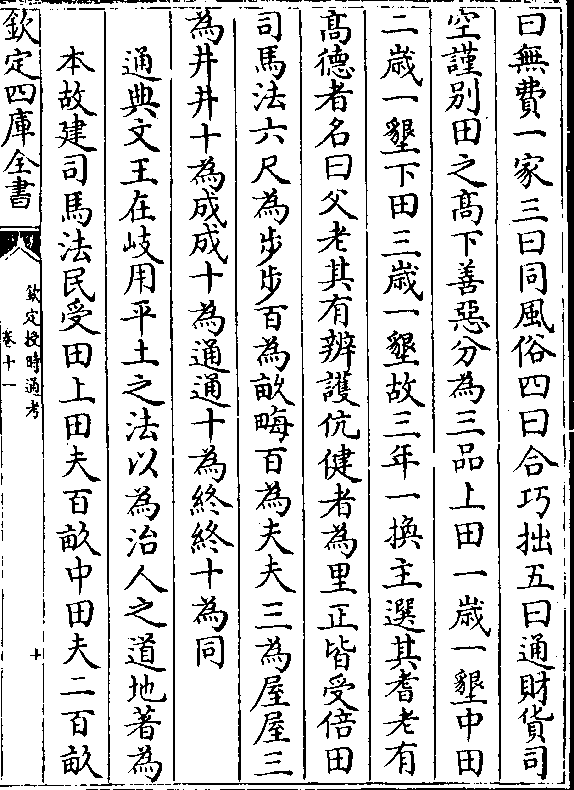 曰無費一家三曰同風俗四曰合巧拙五曰通財貨司
空謹别田之髙下善惡分為三品上田一歲一墾中田
二歲一墾下田三歲一墾故三年一換主選其耆老有
髙德者名曰父老其有辨護伉健者為里正皆受倍田
司馬法六尺為步步百為畝畮百為夫夫三為屋屋三
為井井十為成成十為通通十為終終十為同
通典文王在岐用平土之法以為治人之道地著為
本故建司馬法民受田上田夫百畝中田夫二百畝
欽定四庫全書
欽定授時通考
卷十一
十